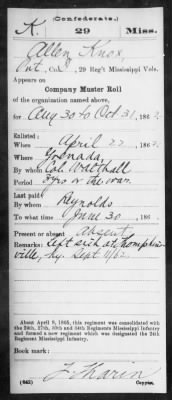 (Confederate.)
K. 29 Miss.
Allen Knox
Pvt, Co. K, 29 Reg't Mississippi Vols.
Appears on
Company Muster Roll
of the organization named above,
for Aug 30 to Oct 31, 1862.
Enlisted:
When April 22, 1862.
Where Grenada,
By whom Col. Walthall
Period 3 yrs or the war.
Last paid:
By whom Reynolds
To what time June 30, 186
Present or absent Absent
Remarks: Left sick at Thompkins-
ville, Ky. Sept 11/62
About April 9, 1865, this regiment was consolidated with
the 24th, 27th, 30th and 34th Regiments Mississippi Infantry
and formed a new regiment which was designated the 24th
Regiment Mississippi Infantry.
Book mark:
(642) Copyist.